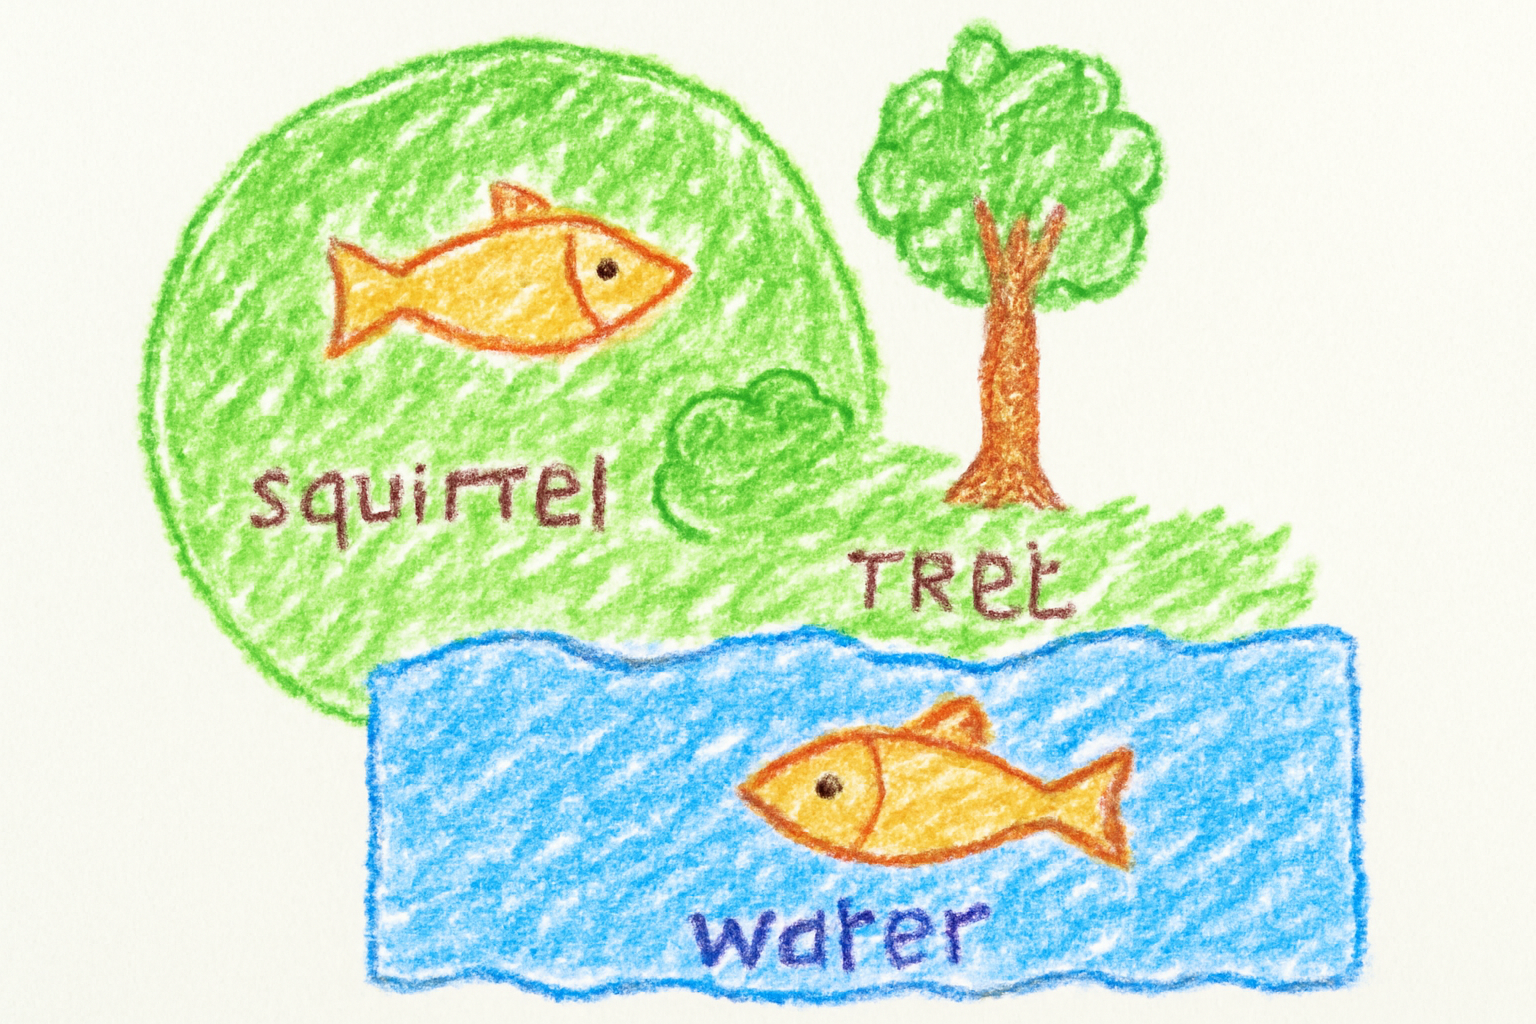 squirrel
TRet
water